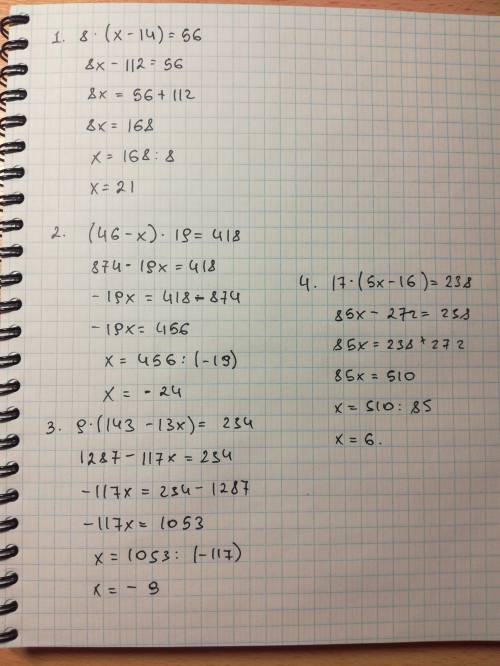 1. 8 · (x - 14) = 56
8x - 112 = 56
8x = 56 + 112
8x = 168
x = 168 : 8
x = 21
2. (46 - x) · 19 = 418
874 - 19x = 418
- 19x = 418 - 874
- 19x = 456
x = 456 : (-19)
x = - 24
3. 9 · (143 - 13x) = 234
1287 - 117x = 234
- 117x = 234 - 1287
- 117x = 1053
x = 1053 : (-117)
x = - 9
4. 17 · (5x - 16) = 238
85x - 272 = 238
85x = 238 + 272
85x = 510
x = 510 : 85
x = 6.